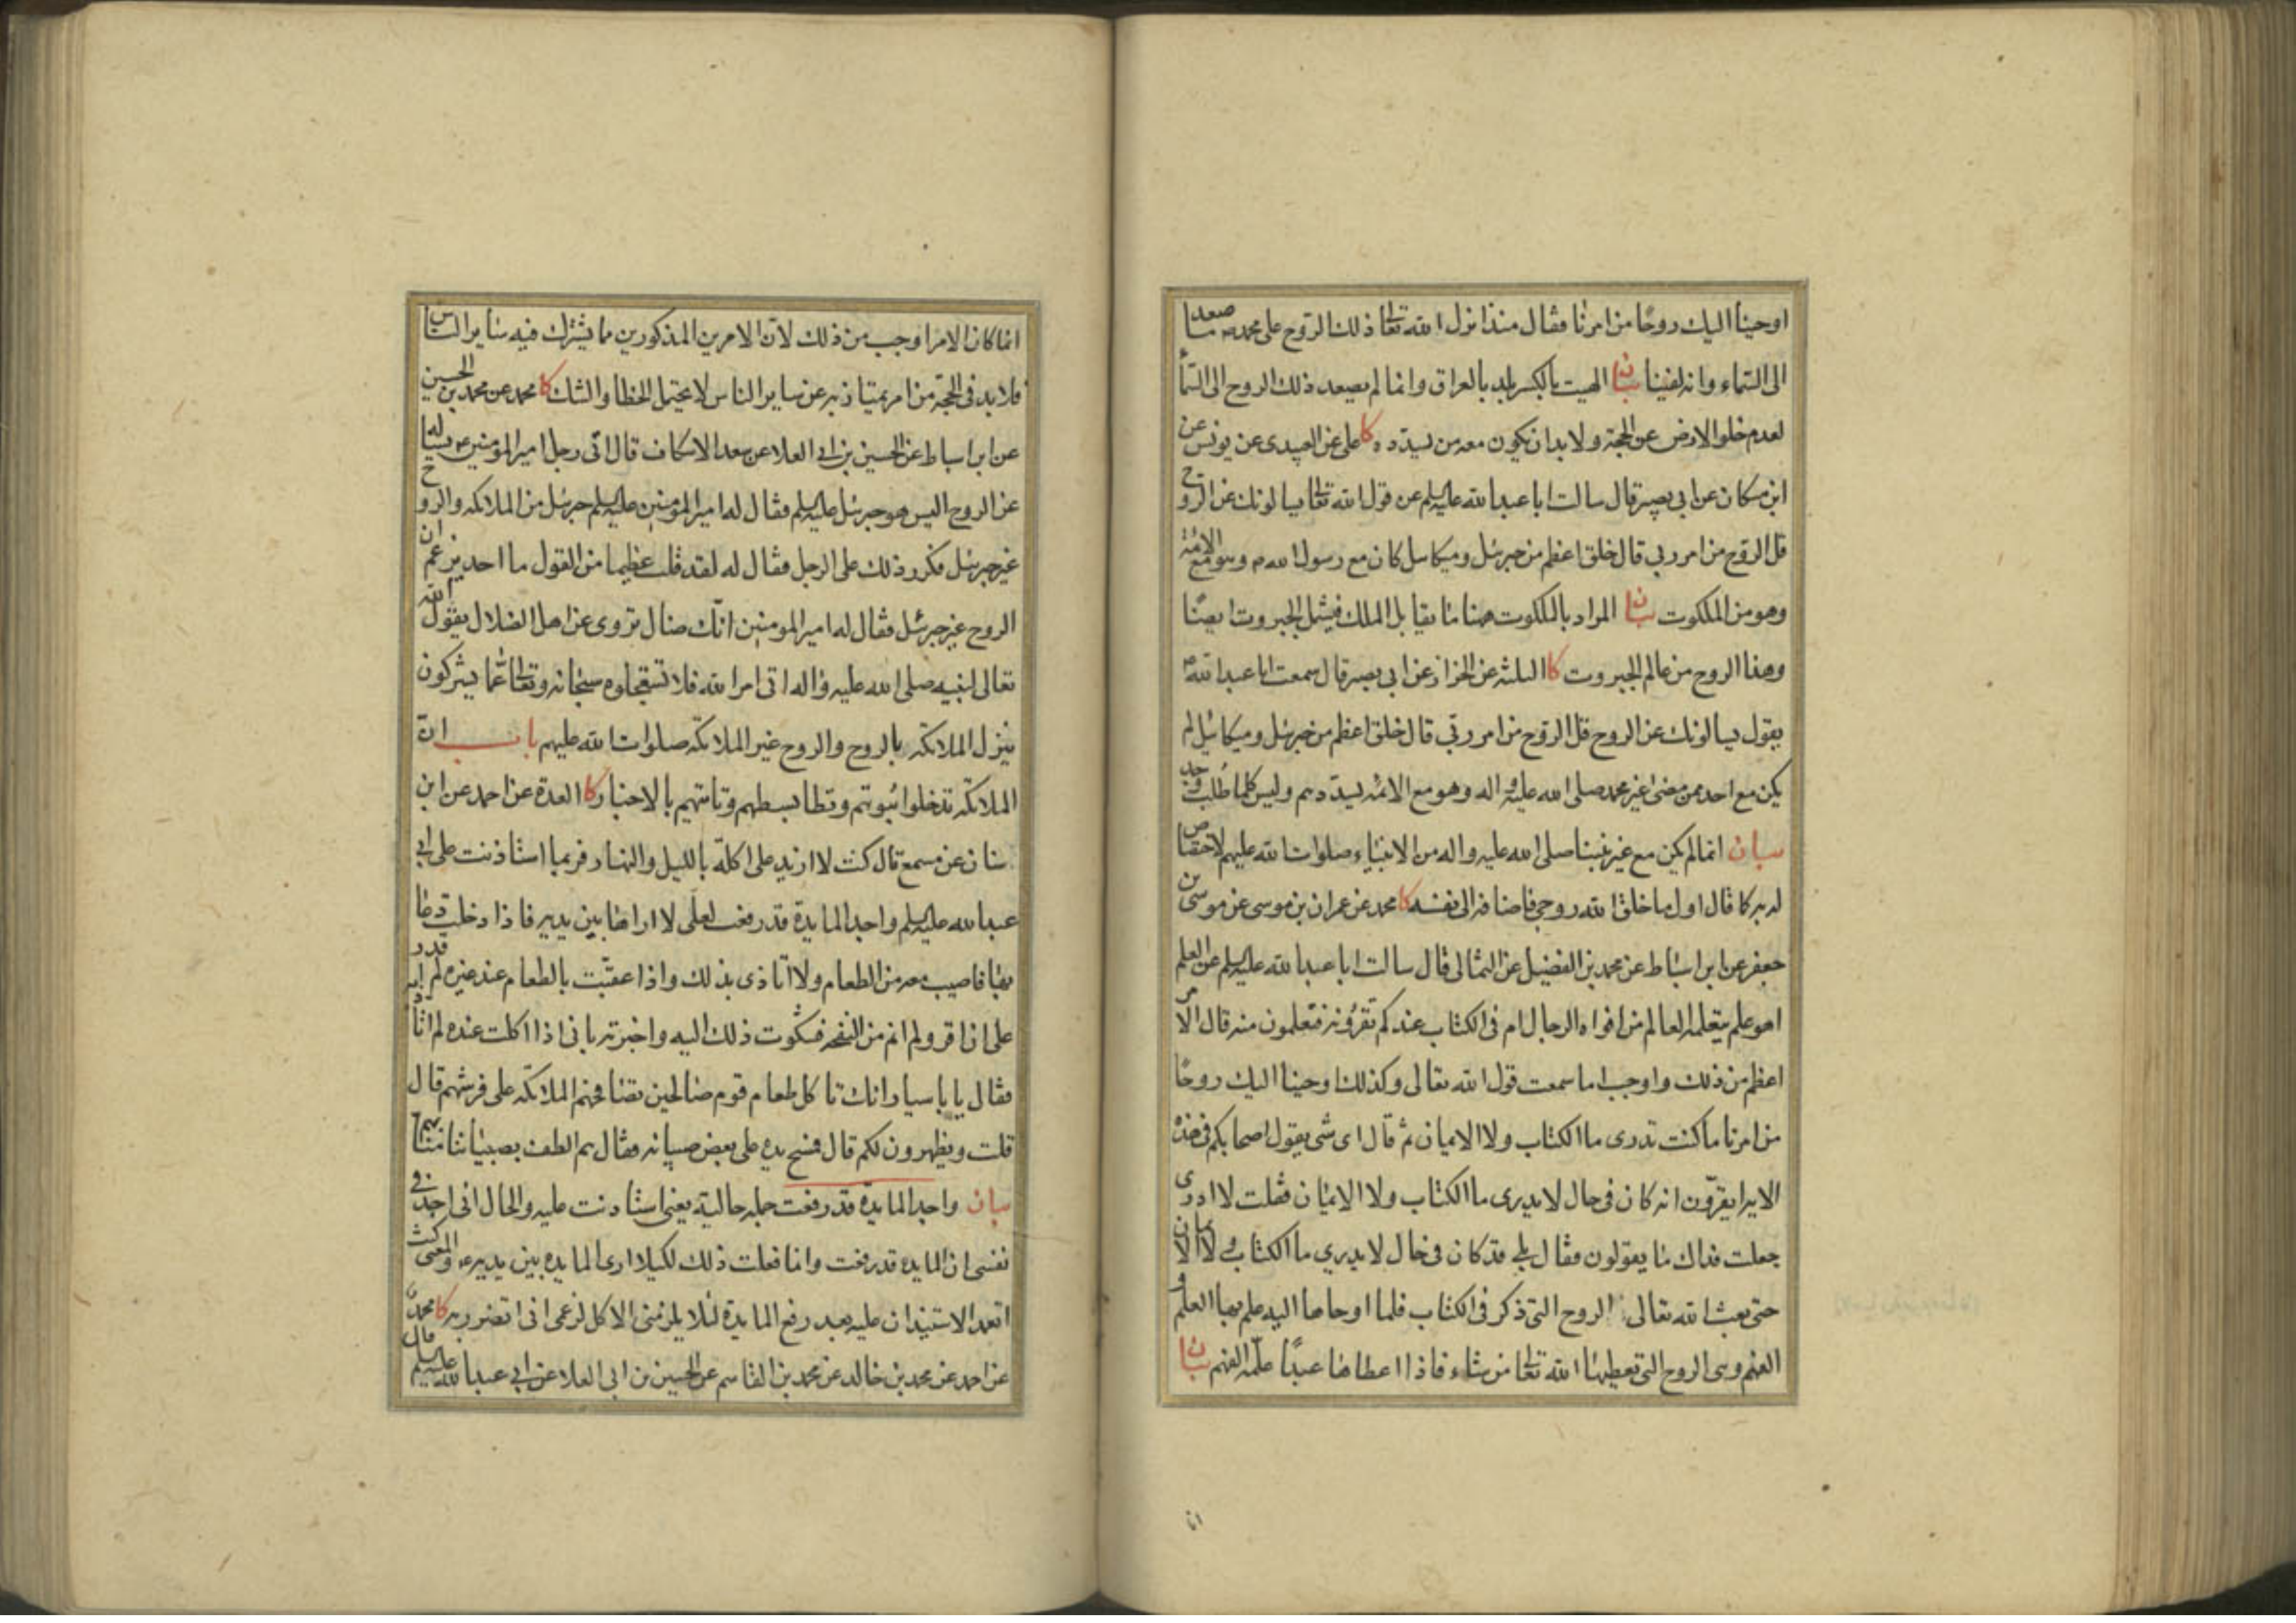 اوحينا اليك روحًا من امرنا فقال منذ انزل الله تعالى ذلك الروح على محمد ص ما صعد
الى السماء وانه لفينا بيان الهيت بالكسر بلد بالعراق وانما لم يصعد ذلك الروح الى السماء
لعدم خلو الارض عن الحجة ولا بد ان يكون معه من يسدده كا على عن العبيدى عن يونس عن
ابن مسكان عن ابي بصير قال سالت ابا عبد الله عليه السلم عن قول الله تعالى يسالونك عن الروح
قل الروح من امر ربي قال خلق اعظم من جبرئيل وميكائيل كان مع رسول الله ص وهو مع الائمة
وهو من الملكوت بيان المراد بالملكوت هنا ما يقابل الملك فيشمل الجبروت ايضًا
وهذا الروح من عالم الجبروت كا الثلثة عن الخزاز عن ابي بصير قال سمعت ابا عبد الله ع
يقول يسالونك عن الروح قل الروح من امر ربي قال خلق اعظم من جبرئيل وميكائيل لم
يكن مع احد ممن مضى غير محمد صلى الله عليه واله وهو مع الائمه يسددهم وليس كلما طلب وجد
بيان انما لم يكن مع غير نبينا صلى الله عليه واله من الانبياء صلوات الله عليهم لاختصا ص
له به كما قال اول ما خلق الله روحي فاضافه الى نفسه كا محمد عن عمران بن موسى عن موسى بن
جعفر عن ابن اسباط عن محمد بن الفضيل عن الثمالى قال سالت ابا عبد الله عليه السلم عن العلم
اهو علم يتعلمه العالم من افواه الرجال ام فى الكتاب عندكم تقرؤنه فتعلمون منه قال الامر
اعظم من ذلك واوجب اما سمعت قول الله تعالى وكذلك اوحينا اليك روحًا
من امرنا ما كنت تدرى ما الكتاب ولا الايمان ثم قال اى شى يقول اصحابكم فى هذه
الاية ايقرون انه كان فى حال لا يدرى ما الكتاب ولا الايمان فقلت لا ادرى
جعلت فداك ما يقولون فقال بلى قد كان فى حال لا يدري ما الكتاب ولا الايمان
حتى بعث الله تعالى الروح التى ذكر فى الكتاب فلما اوحاها اليه علم بها العلم و
الفهم وهى الروح التى يعطيها الله تعالى من شاء فاذا اعطاها عبدًا علّمه الفهم بيان
انما
انما كان الامر اوجب من ذلك لان الامرين المذكورين مما يشترك فيه ساير الناس
فلا بد فى الحجة من امر يمتاز به عن ساير الناس لا يحتمل الخطا والشك كا محمد عن محمد بن الحسين
عن ابن اسباط عن الحسين بن ابي العلا عن سعد الاسكاف قال اتى رجل امير المؤمنين ع يساله
عن الروح اليس هو جبرئيل عليه السلم فقال له امير المؤمنين عليه السلم جبرئيل من الملائكه والروح
غير جبرئيل فكرر ذلك على الرجل فقال له لقد قلت عظيما من القول ما احد يزعم ان
الروح غير جبرئيل فقال له امير المومنين انّك ضال تروى عن اهل الضلال يقول الله
تعالى لنبيه صلى الله عليه واله اتى امر الله فلا تستعجلوه سبحانه وتعالى عمّا يشركون
ينزل الملائكه بالروح والروح غير الملائكه صلوات الله عليهم باب ان
الملائكه تدخل بيوتهم وتطا بسطهم وتاتيهم بالاخبار كا العدة عن احمد عن ابن
سنان عن مسمع قال كنت لا ازيد على اكلة بالليل والنهار فربما استاذنت على ابي
عبد الله عليه السلم واجد المايدة قد رفعت لعلى لا اراها بين يديه فاذا دخلت دعا
بها فاصيب معه من الطعام ولا اتاذى بذلك واذا عقبت بالطعام عند غيره لم اقدر
على ان اقر ولم انم من النفخه فشكوت ذلك اليه واخبرته بانى اذا اكلت عنده لم اتاذ
فقال يا با سيار انك تاكل طعام قوم صالحين تصافحهم الملائكه على فرشهم قال
قلت ويظهرون لكم قال فمسح يده على بعض صبيانه فقال هم الطف بصبياننا منا بهم
بيان واجد المايدة قد رفعت جملة حالية يعنى استاذنت عليه والحال انى اجد فى
نفسى ان المايده قد رفعت وانما فعلت ذلك لكيلا ارى المايده بين يديه ع والمعنى كنت
اتعمد الاستيذان عليه بعد رفع المايدة لئلا يلزمنى الاكل لزعمى انى اتضرر به كا محمد
عن احمد عن محمد بن خالد عن محمد بن القاسم عن الحسين بن ابى العلا عن ابي عبد الله عليه السلم قال